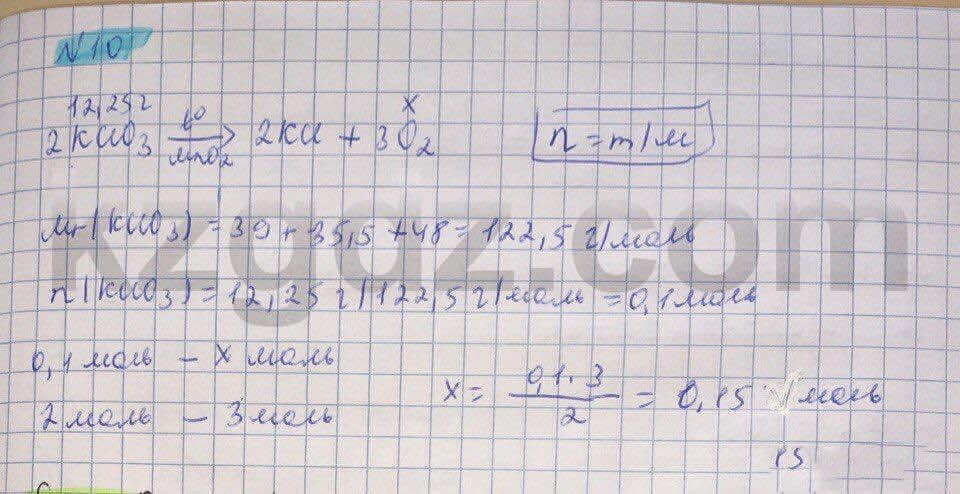 N10
12,25г x
2KClO3 t° MnO2 2KCl + 3O2 n = m/M
Mr(KClO3) = 39 + 35,5 + 48 = 122,5 г/моль
n(KClO3) = 12,25 г/122,5 г/моль = 0,1 моль
0,1 моль – X моль
2 моль – 3 моль
x = 0,1 · 3 / 2 = 0,15 моль
15
kzgdz.com